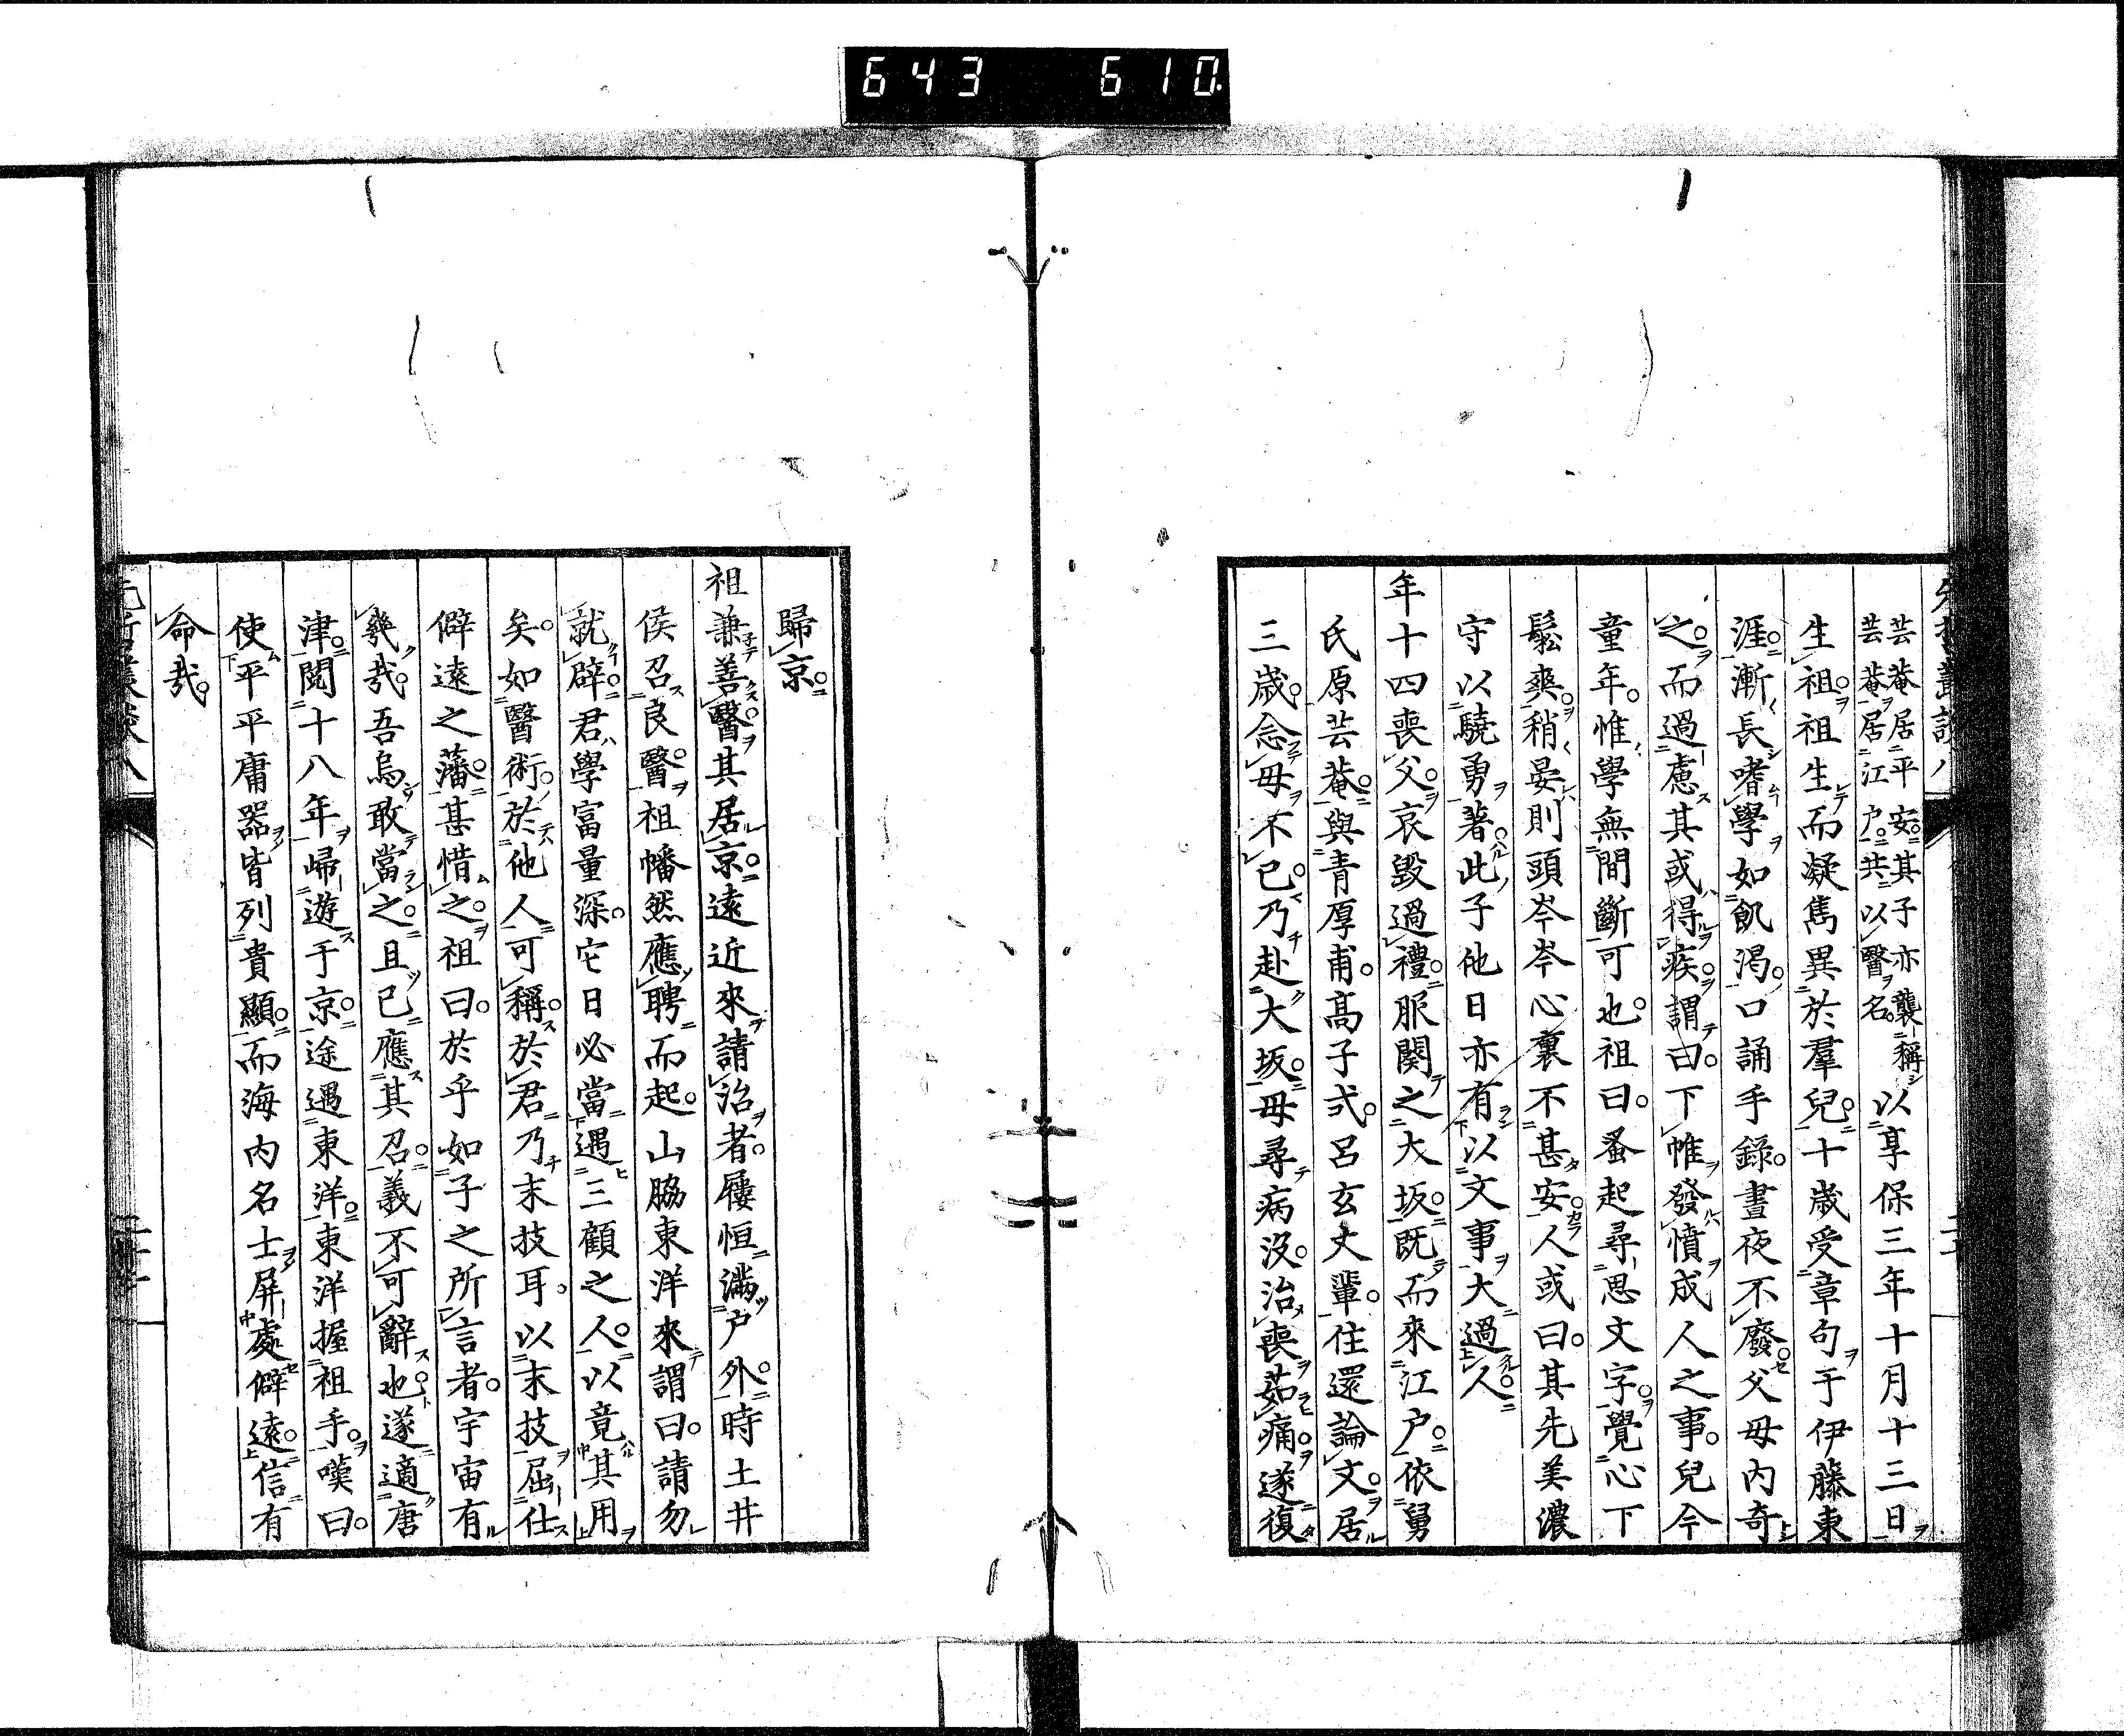 643 610
先哲叢談八
芸菴居平安。其子亦襲稱
芸菴居江戶。共以醫名。
以享保三年十月十三日
生祖。祖生而凝雋異於羣兒。十歲受章句于伊藤東
涯。漸長嗜學如飢渴。口誦手錄。晝夜不廢。父母內奇
之。而過慮其或得疾。謂曰。下帷發憤成人之事。兒今
童年。惟學無間斷可也。祖曰。蚤起尋思文字。覺心下
鬆爽。稍晏則頭岑岑心裏不甚安。人或曰。其先美濃
守以驍勇著。此子他日亦有以文事大過人。
年十四喪父。哀毀過禮。服闋之大坂。既而來江戶。依舅
氏原芸菴。與青厚甫。高子式。呂玄丈輩。往還論文。居
三歲。念母不已。乃赴大坂。母尋病沒。治喪茹痛。遂復
歸京。
祖兼善醫。其居京。遠近來請治者。屨恒滿戶外。時土井
侯召良醫。祖幡然應聘而起。山脇東洋來謂曰。請勿
就辟。君學富量深。它日必當遇三顧之人。以竟其用
矣。如醫術。於他人可稱。於君乃末技耳。以末技屈仕
僻遠之藩。甚惜之。祖曰。於乎如子之所言者。宇宙有
幾哉。吾烏敢當之。且已應其召。義不可辭也。遂適唐
津。閱十八年。歸遊于京。途遇東洋。東洋握祖手。嘆曰。
使平平庸器皆列貴顯。而海內名士屏處僻遠。信有
命哉。
先哲叢談八